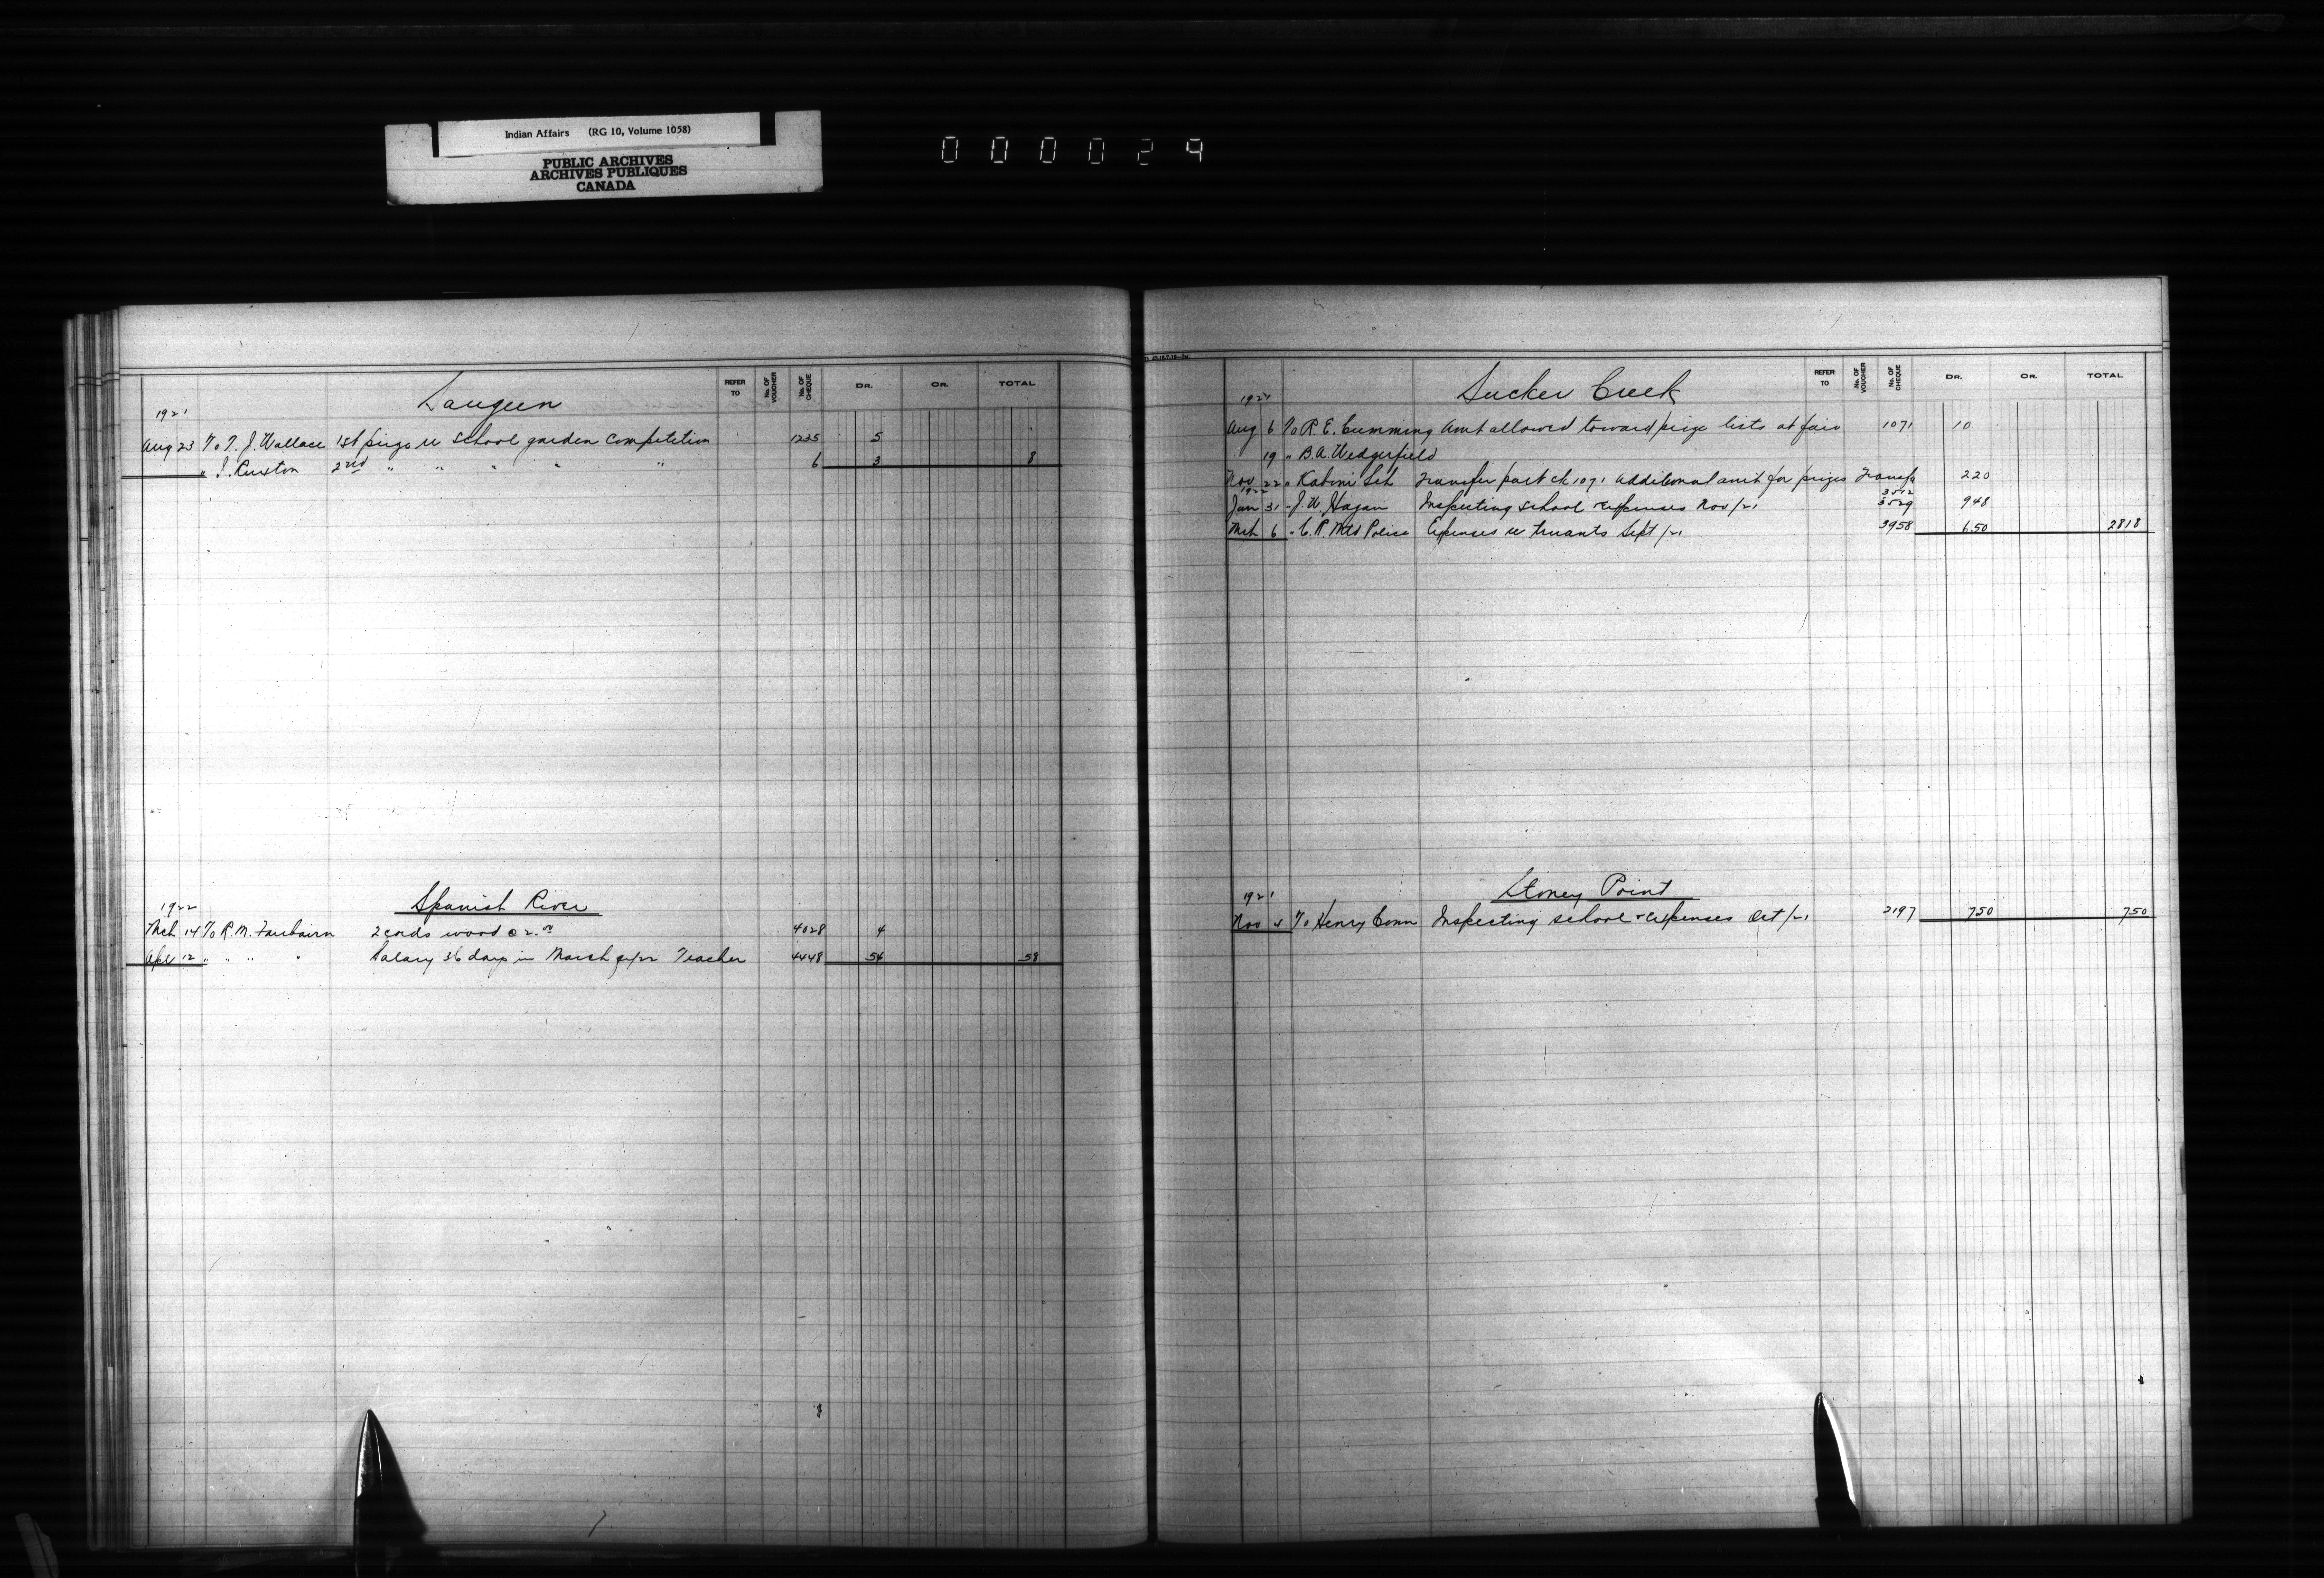 Indian Affairs (RG 10, Volume 1058)
PUBLIC ARCHIVES
ARCHIVES PUBLIQUES
CANADA
000029
REFER TO No. OF VOUCHER No. OF CHEQUE DR. CR. TOTAL
Saugeen
1921
Aug 23 To T. J. Wallace 1st prize re school garden competition 1235 5
" J. Ruxton 2nd " " " " " 6 3 8
Spanish River
1922
Mch 14 To R. M. Fairbairn 2 cords wood @ 2.00 4028 4
Apl 12 " " " " Salary 36 days in March qr/22 Teacher 4448 54 58
REFER TO No. OF VOUCHER No. OF CHEQUE DR. CR. TOTAL
Sucker Creek
1921
Aug 6 To R. E. Cumming Amt allowed toward prize lists at fair 1071 10
19 " B. A. Wedgerfield
Nov 22 " Kaboni Sch Transfer part ck 1071 additional amt for prizes Transfer 220
1922
Jan 31 " J. W. Hagan Inspecting school & expenses Nov/21 3529 948
Mch 6 " C. R. Mtd Police Expenses re truants Sept/21 3958 650 2818
Stoney Point
1921
Nov 4 To Henry Conn Inspecting school & expenses Oct/21 2197 750 750